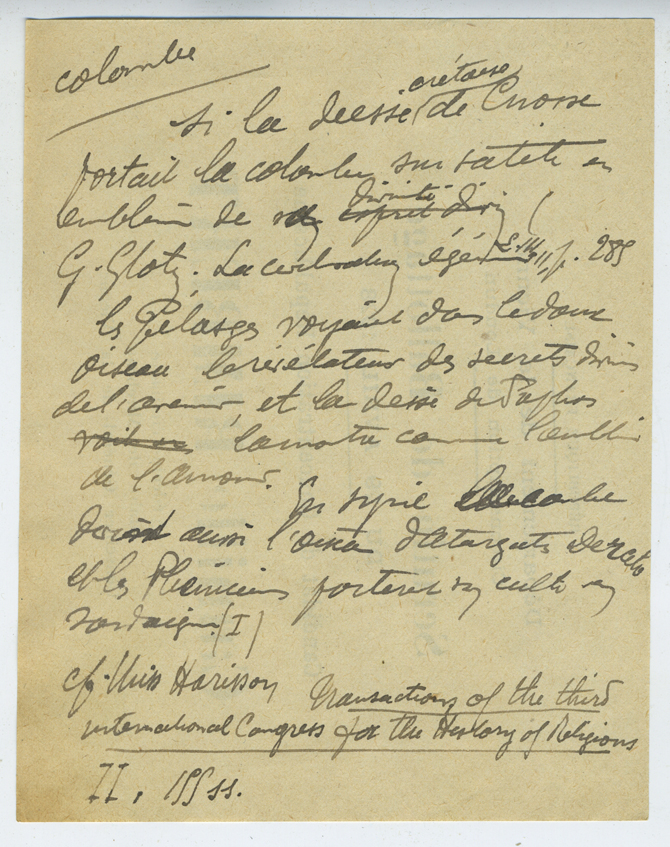 colombe
crétoise
Si la déesse de Cnosse
portait la colombe sur sa tête en
divinité
emblème de sa esprit divin (
G. Glotz. La civilisation égé p. 285
les Pélasges voyaient dans le doux
oiseau le révélateur des secrets divins
de l'avenir, et la déesse de Paphos
la montre comme l'emblème
de l'amour.
En Syrie la colombe
devint aussi l'oiseau d'Atargatis Derceto
et les Phéniciens portèrent son culte en
Sardaigne (I)
cf. Miss Harisson Transactions of the third
international Congress for the History of Religions
II, ss.